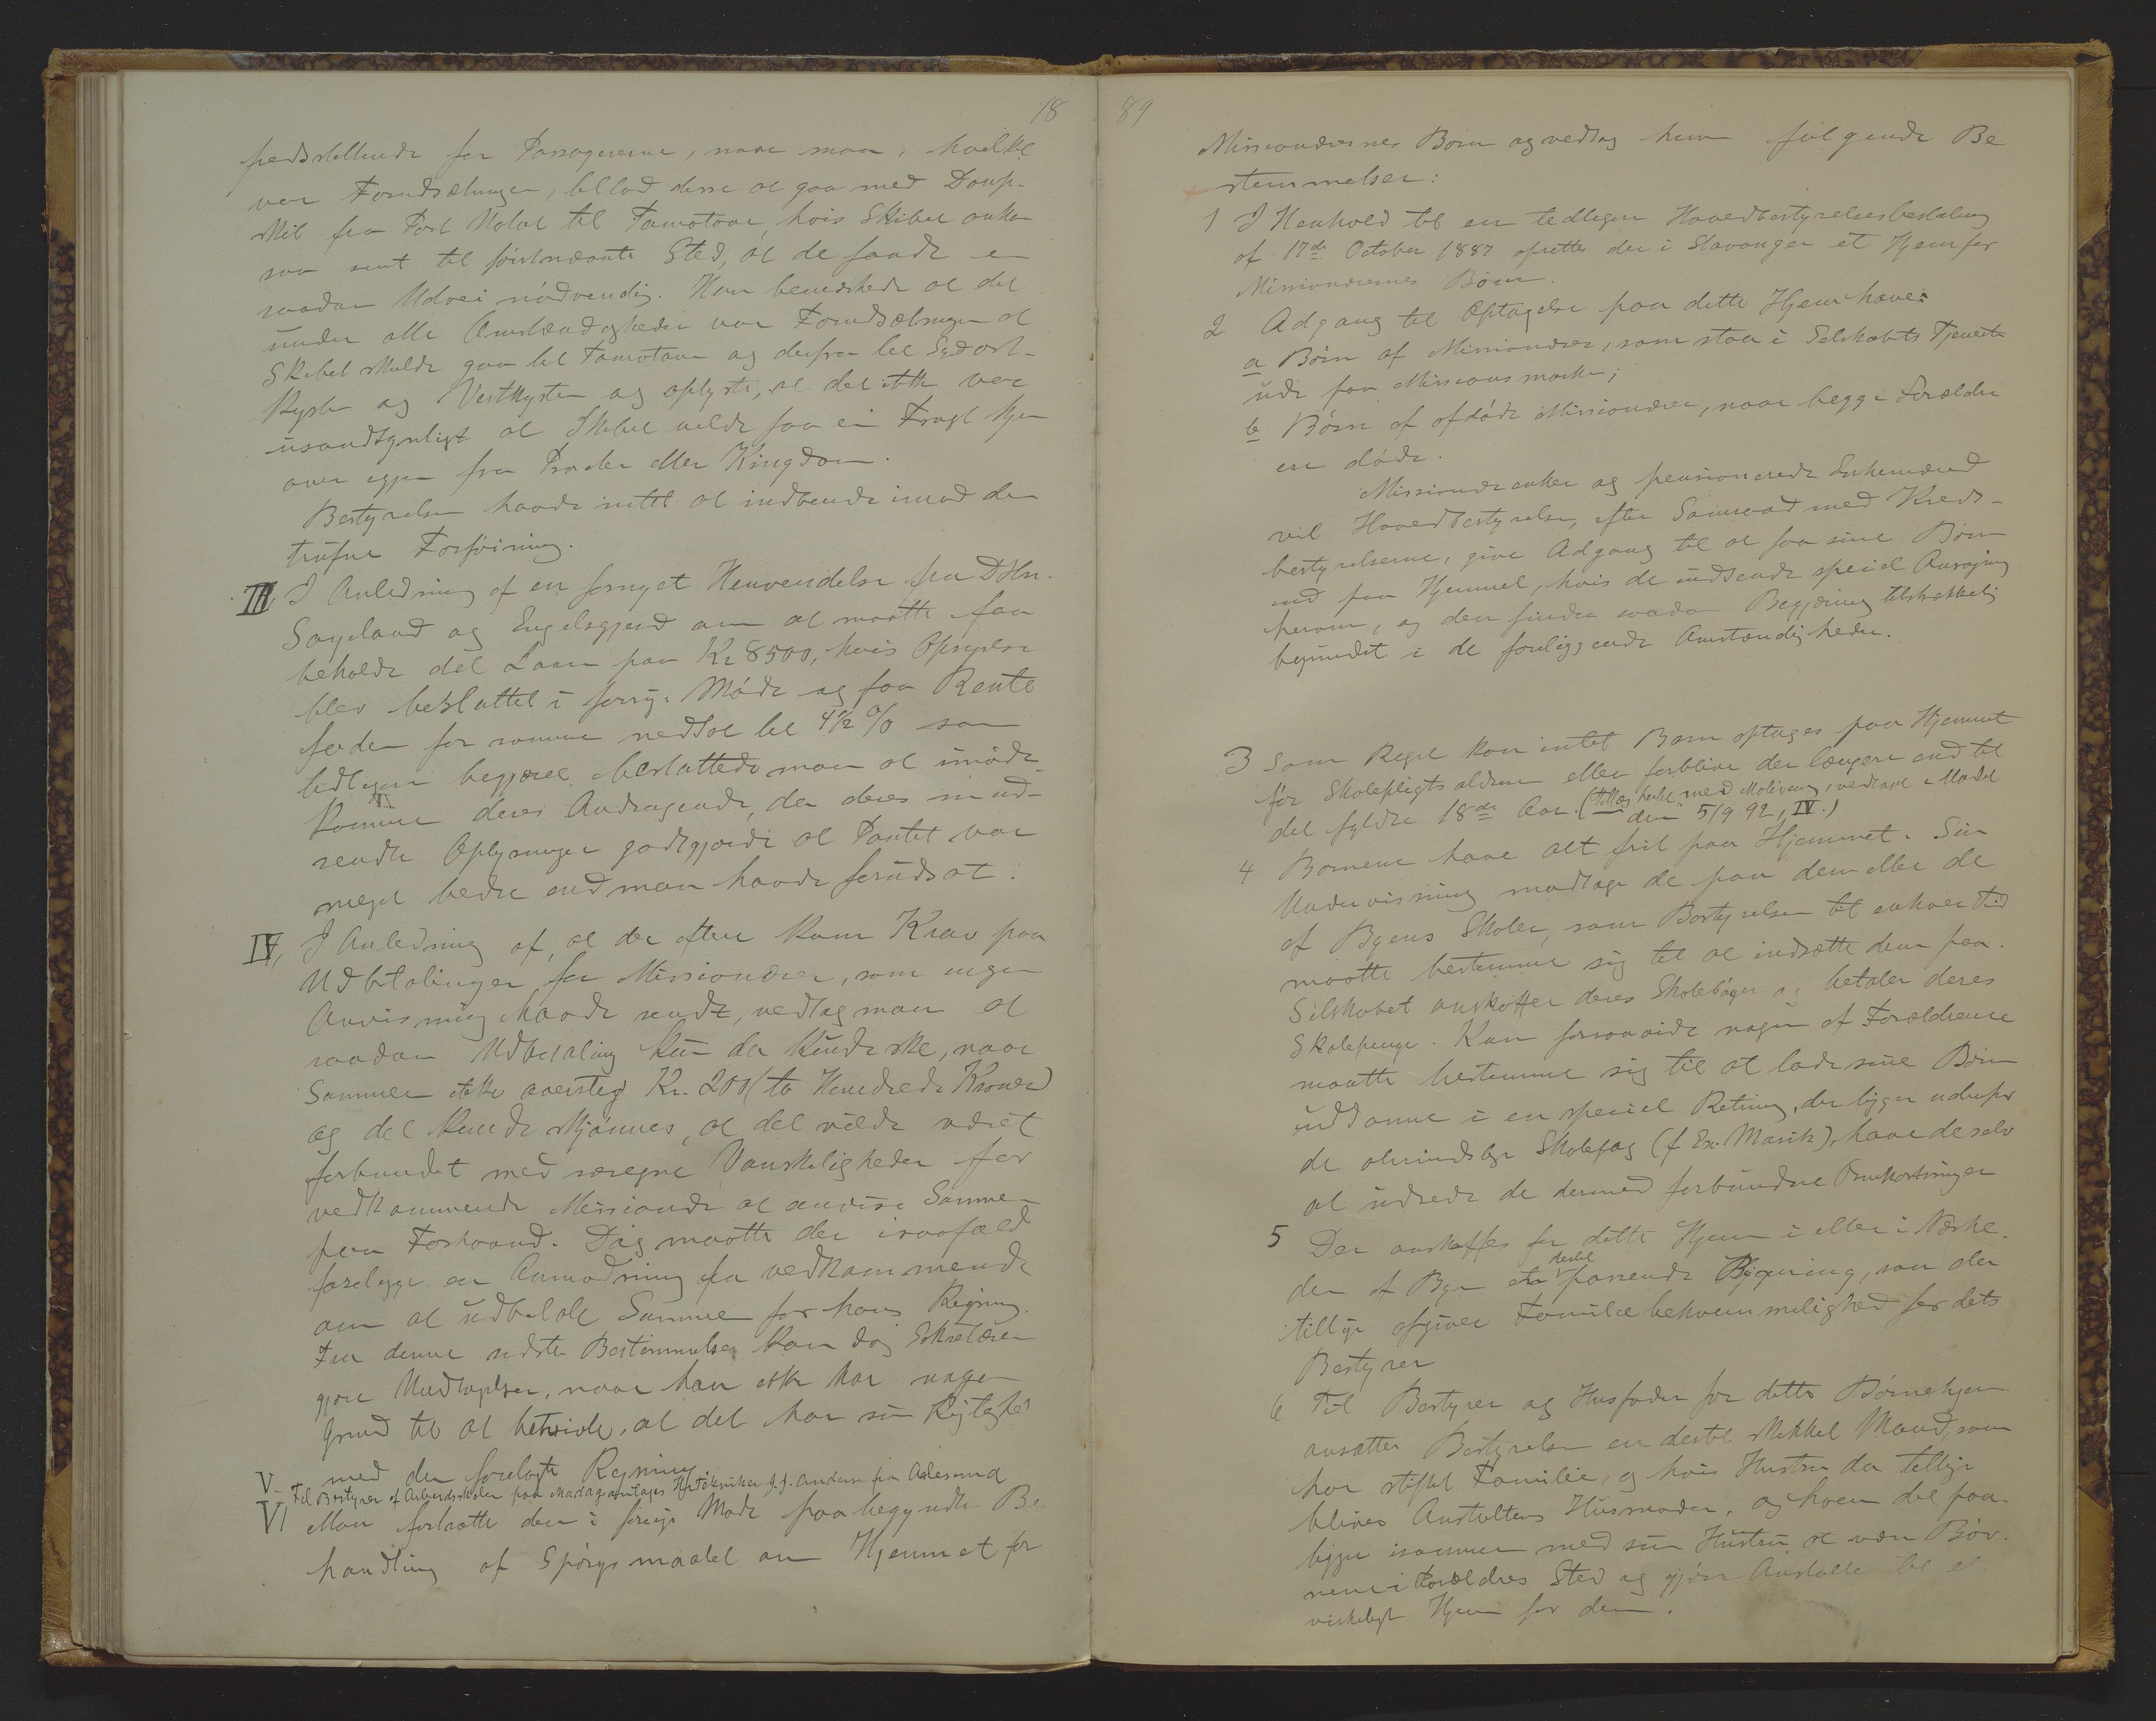 18
fredsstillende for Passagererne, naar man, hvilket
var Forudsætningen, tillod disse at gaa med Damp-
skib fra Port Natal til Tamatave, hvis Skibet ankom
saa sent til førstnævnte Sted, at de fandt en
saadan Udvei nødvendig. Han bemærkede at det
under alle Omstændigheder var Forudsætningen at
Skibet skulde gaa til Tamatave og derfra til Sydost-
Kysten og Vestkysten og oplyste, at det ikke var
usandsynligt at Skibet vilde faa en Fragt hjem
over igjen fra
Bestyrelsen havde intet at indvende imod den
trufne Forføining.
III, I Anledning af en fornyet Henvendelse fra DHrr.
Søyland og Engelsgjerd om at maatte faa
beholde det Laan paa Kr 8500, hvis Opsigelse
blev besluttet i forrige Møde og faa Rente
foden for samme nedsat til 4½ % som
tidligere begjæret besluttede man at imøde-
komme deres Andragende, da deres ind-
sendte Oplysninger godtgjorde at Pantet var
meget bedre end man havde forudsat.
IV, I Anledning af, at der oftere kom Krav paa
Udbetalinger for Missionærer, som ingen
Anvisning havde sendt, vedtog man at
saadan Udbetaling kun da kunde ske, naar
Summen ikke oversteg Kr. 200 (to Hundrede Kroner)
og det kunde skjønnes, at det vilde været
forbundet med særegne Vanskeligheder for
vedkommende Missionær at anvise Summen
paa Forhaand. Dog maatte der isaafald
foreligge en Anmodning fra vedkommende
om at udbetale Summen for hans Regning.
Fra denne sidste Bestemmelse kan dog Sekretæren
gjøre Undtagelser, naar han ikke har nogen
Grund til at betvivle, at det har sin Rigtighed
med den forelagte Regning.
V- Til Bestyrer af Arbeidsskolen paa Madagaskar antages Hr Tekniker J. J. Andersen fra Aalesund
VI Man fortsatte den i forrige Møde paabegyndte Be
handling af Spørgsmaalet om Hjemmet for
89
Missionærernes Børn og vedtog herom følgende Be
stemmelser:
1 I Henhold til en tidligere Hovedbestyrelsesbeslutning
af 17de October 1887 oprettes der i Stavanger et Hjem for
Missionærernes Børn.
2 Adgang til Optagelse paa dette Hjem have:
a Børn af Missionærer, som staa i Selskabets Tjeneste
ude paa Missionsmarken;
b Børn af afdøde Missionærer, naar begge Forældre
ere døde.
Missionærenker og pensionerede Enkemænd
vil Hovedbestyrelsen, efter Samraad med Kreds-
bestyrelserne, give Adgang til at faa sine Børn
ind paa Hjemmet, hvis de indsende speciel Ansøgning
herom, og den finder saadan Begjæring tilstrækkelig
begrundet i de foreliggende Omstændigheder.
3 Som Regel kan intet Barn optages paa Hjemmet
før Skolepligtsalderen eller forblive der længere end til
det fyldte 18de Aar. (Tillæg hertil, med Motivering, vedtaget i Mødet
den 5/9 92, IV.)
4 Børnene have alt frit paa Hjemmet. Sin
Undervisning modtage de paa den eller de
af Byens Skoler, som Bestyrelsen til enhver Tid
maatte bestemme sig til at indsætte dem paa.
Selskabet anskaffer deres Skolebøger og betaler deres
Skolepenge. Kun forsaavidt nogen af Forældrene
maatte bestemme sig til at lade sine Børn
uddanne i en speciel Retning, der ligger udenfor
de almindelige Skolefag (f Ex. Musik), have de selv
at udrede de dermed forbundne Omkostninger
5 Der anskaffes for dette Hjem i eller i Nærhe-
den af Byen en dertil passende Bygning, som der
tillige afgiver Familiebekvemmelighed for dets
Bestyrer
6 Til Bestyrer og Husfader for dette Børnehjem
ansætter Bestyrelsen en dertil skikket Mand, som
har stiftet Familie, og hvis Hustru da tillige
bliver Anstaltens Husmoder, og hvem det paa-
ligger isammen med sin Hustru at være Bør-
nene i Forældres Sted og gjøre Anstalten til et
virkeligt Hjem for dem.